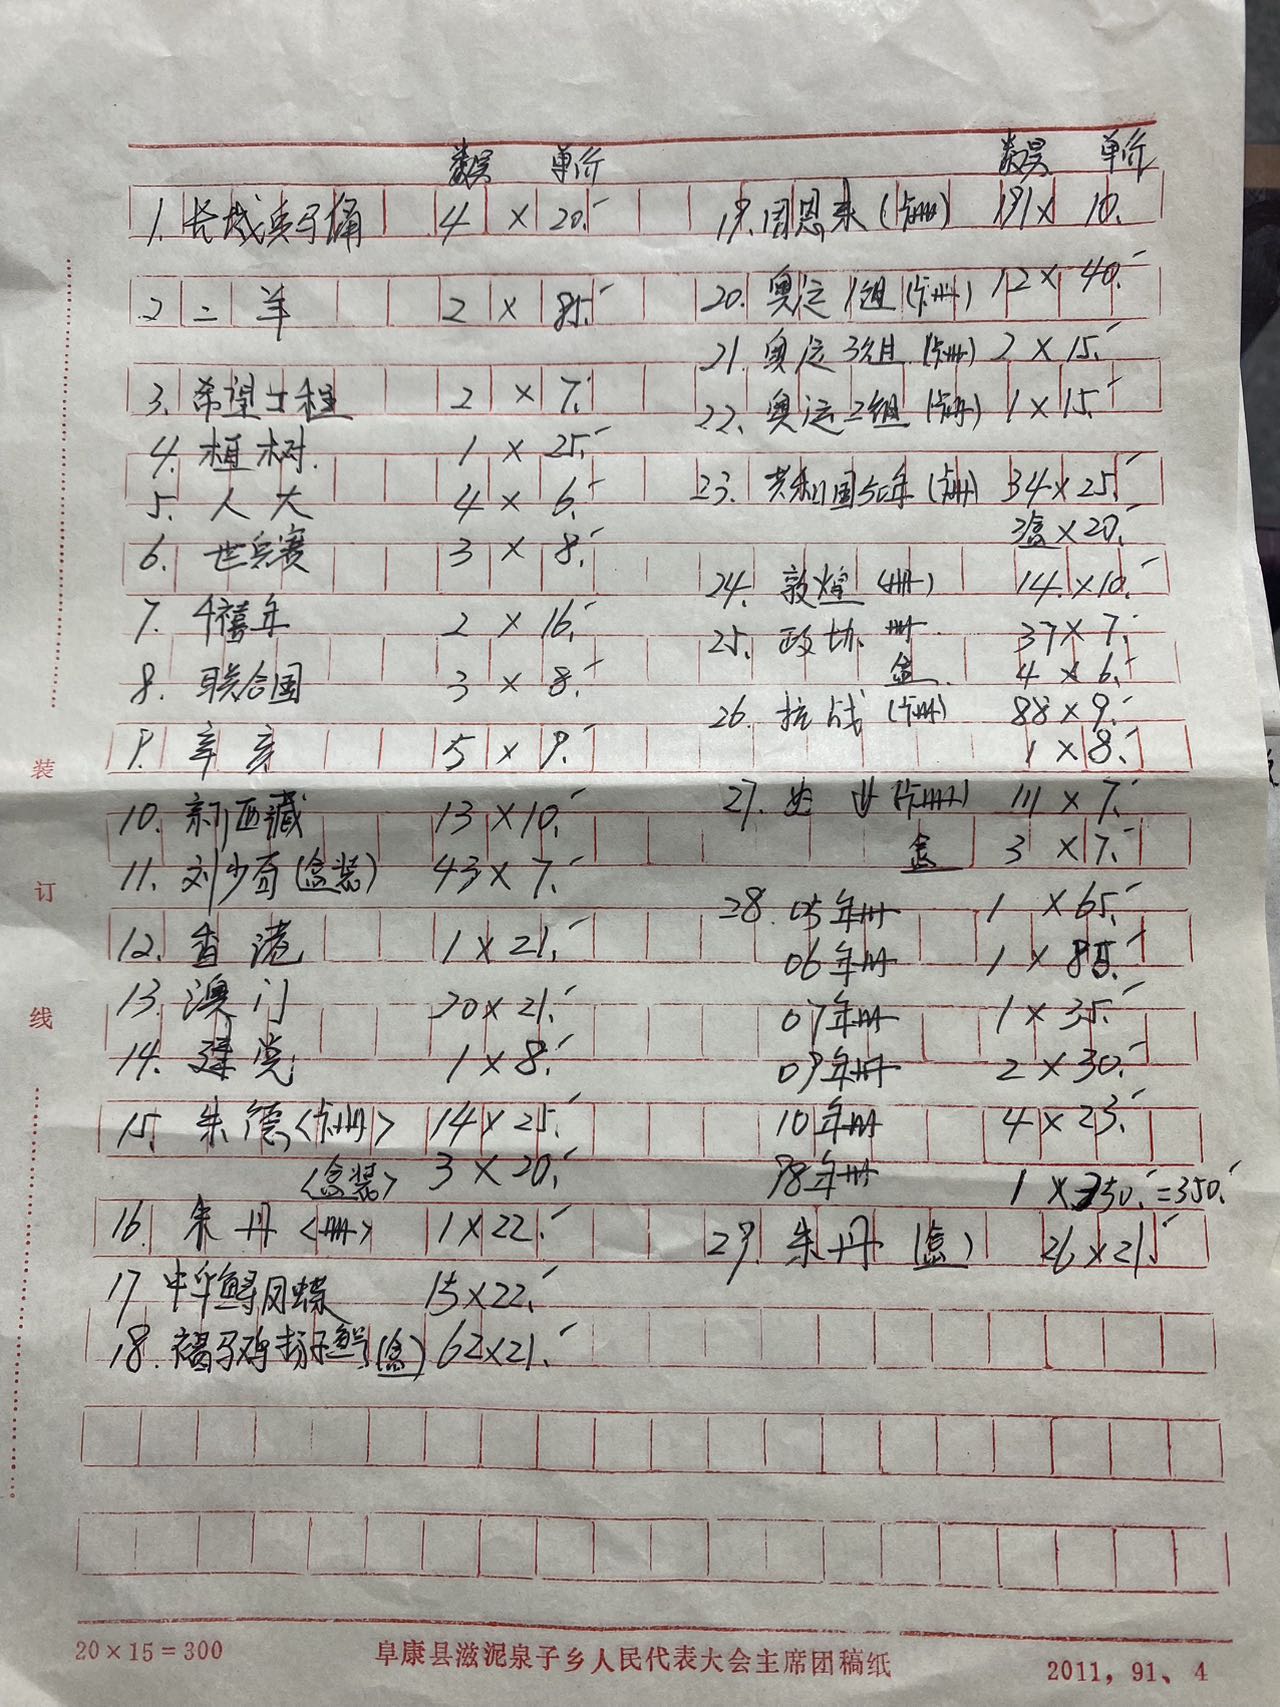 数量 单价
1. 长城兵马俑 4 × 20.
2 二羊 2 × 85.
3. 希望工程 2 × 7.
4. 植树. 1 × 25.
5. 人大 4 × 6.
6. 世乒赛 3 × 8.
7. 千禧年 2 × 16.
8. 联合国 3 × 8.
9. 辛亥 5 × 9.
10. 新西藏 13 × 10.
11. 刘少奇(盒装) 43 × 7.
12. 香港 1 × 21.
13. 澳门 20 × 21.
14. 建党 1 × 8.
15. 朱德<卡册> 14 × 25.
<盒装> 3 × 20.
16. 朱丹<册> 1 × 22.
17 中华鲟凤蝶 15 × 22.
18. 褐马鸡扬子鳄(盒) 62×21.
数量 单价
19. 周恩来(卡册) 191 × 10.
20. 奥运1组(卡册) 12 × 40.
21. 奥运3组(卡册) 2 × 15.
22. 奥运2组(卡册) 1 × 15.
23. 共和国50年(卡册) 34 × 25.
2盒 × 20.
24. 敦煌(册) 14 × 10.
25. 政协. 册 37 × 7.
盒. 4 × 6.
26. 抗战(卡册) 88 × 9.
1 × 8.
27. (卡册) 111 × 7.
盒 3 × 7.
28. 05年册 1 × 65.
06年册 1 × 85.
07年册 1 × 35.
09年册 2 × 30.
10年册 4 × 23.
98年册 1 × 350.=350.
29. 朱丹(盒) 26 × 21.
装
订
线
20×15=300 阜康县滋泥泉子乡人民代表大会主席团稿纸 2011，91、4